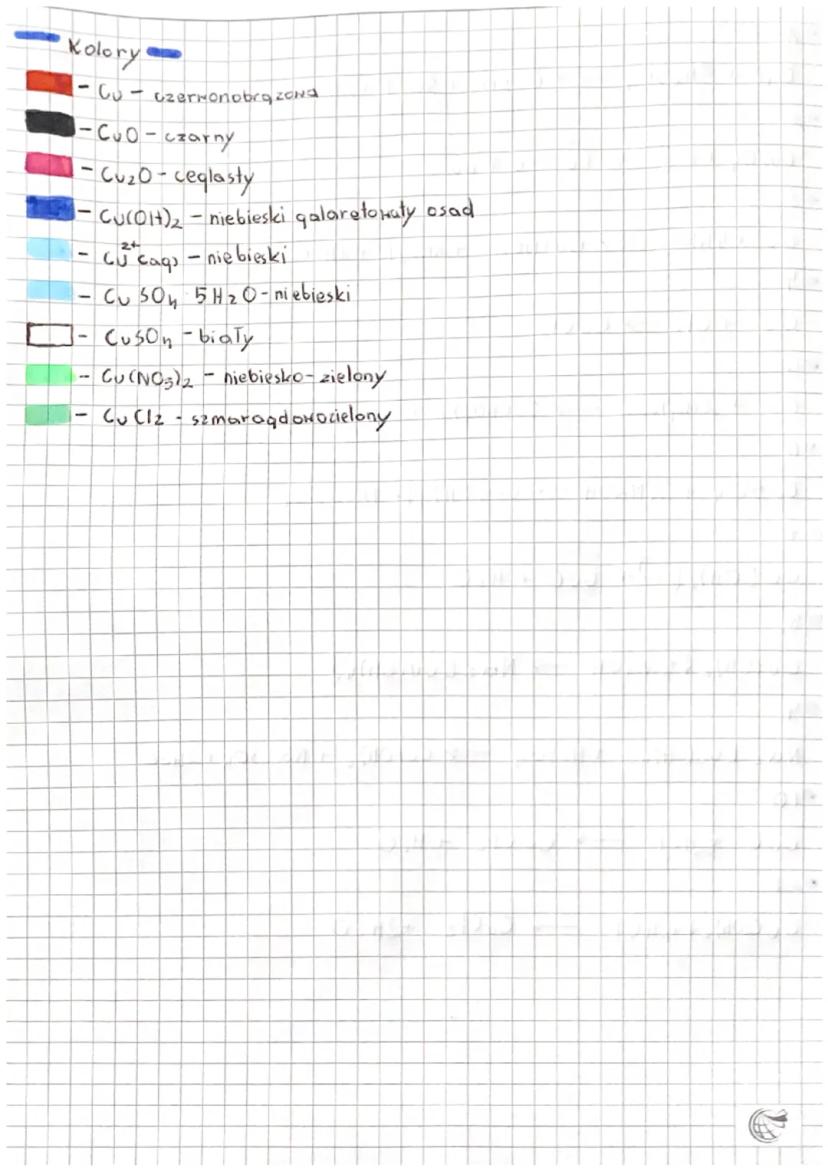 Kolory
- Cu - czerwonobrązowa
- CuO - czarny
- Cu2O - ceglasty
- Cu(OH)2 - niebieski galaretowaty osad
- Cu2+(aq) - niebieski
- CuSO4 5H2O - niebieski
- CuSO4 - biały
- Cu(NO3)2 - niebiesko-zielony
- CuCl2 - szmaragdowozielony